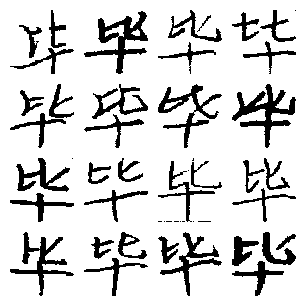 毕毕毕毕
毕毕毕毕
毕毕毕毕
毕毕毕毕